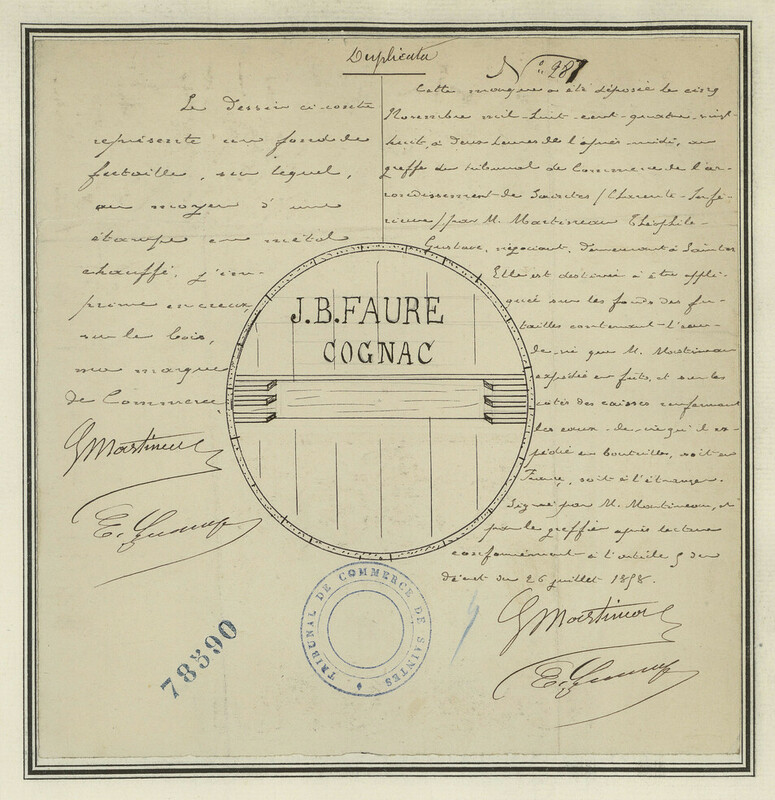 Duplicata
N° 287
Le Dessin ci-contre
représente un fond de
futaille, sur lequel,
au moyen d'une
étampe en métal
chauffé, j'im-
prime en creux,
sur le bois,
ma marque
de Commerce
GMartineau
Cette marque a été déposée le cinq
Novembre mil-huit-cent-quatre-vingt-
huit, à deux heures de l'après-midi, au
greffe du tribunal de Commerce de l'ar-
rondissement de Saintes (Charente-Infé-
rieure) par M. Martineau Théophile-
Gustave, négociant, demeurant à Saintes
Elle est destinée à être appli-
quée sur les fonds des fu-
tailles contenant l'eau-
de-vie que M. Martineau
expédie en fûts, et sur les
côtés des caisses renfermant
les eaux-de-vie qu'il ex-
pédie en bouteilles, soit en
France, soit à l'étranger.
Signé par M. Martineau, et
par le greffier après lecture
conformément à l'article 5 du
décret du 26 juillet 1858.
GMartineau
J.B.FAURE
COGNAC
TRIBUNAL DE COMMERCE DE SAINTES
78390